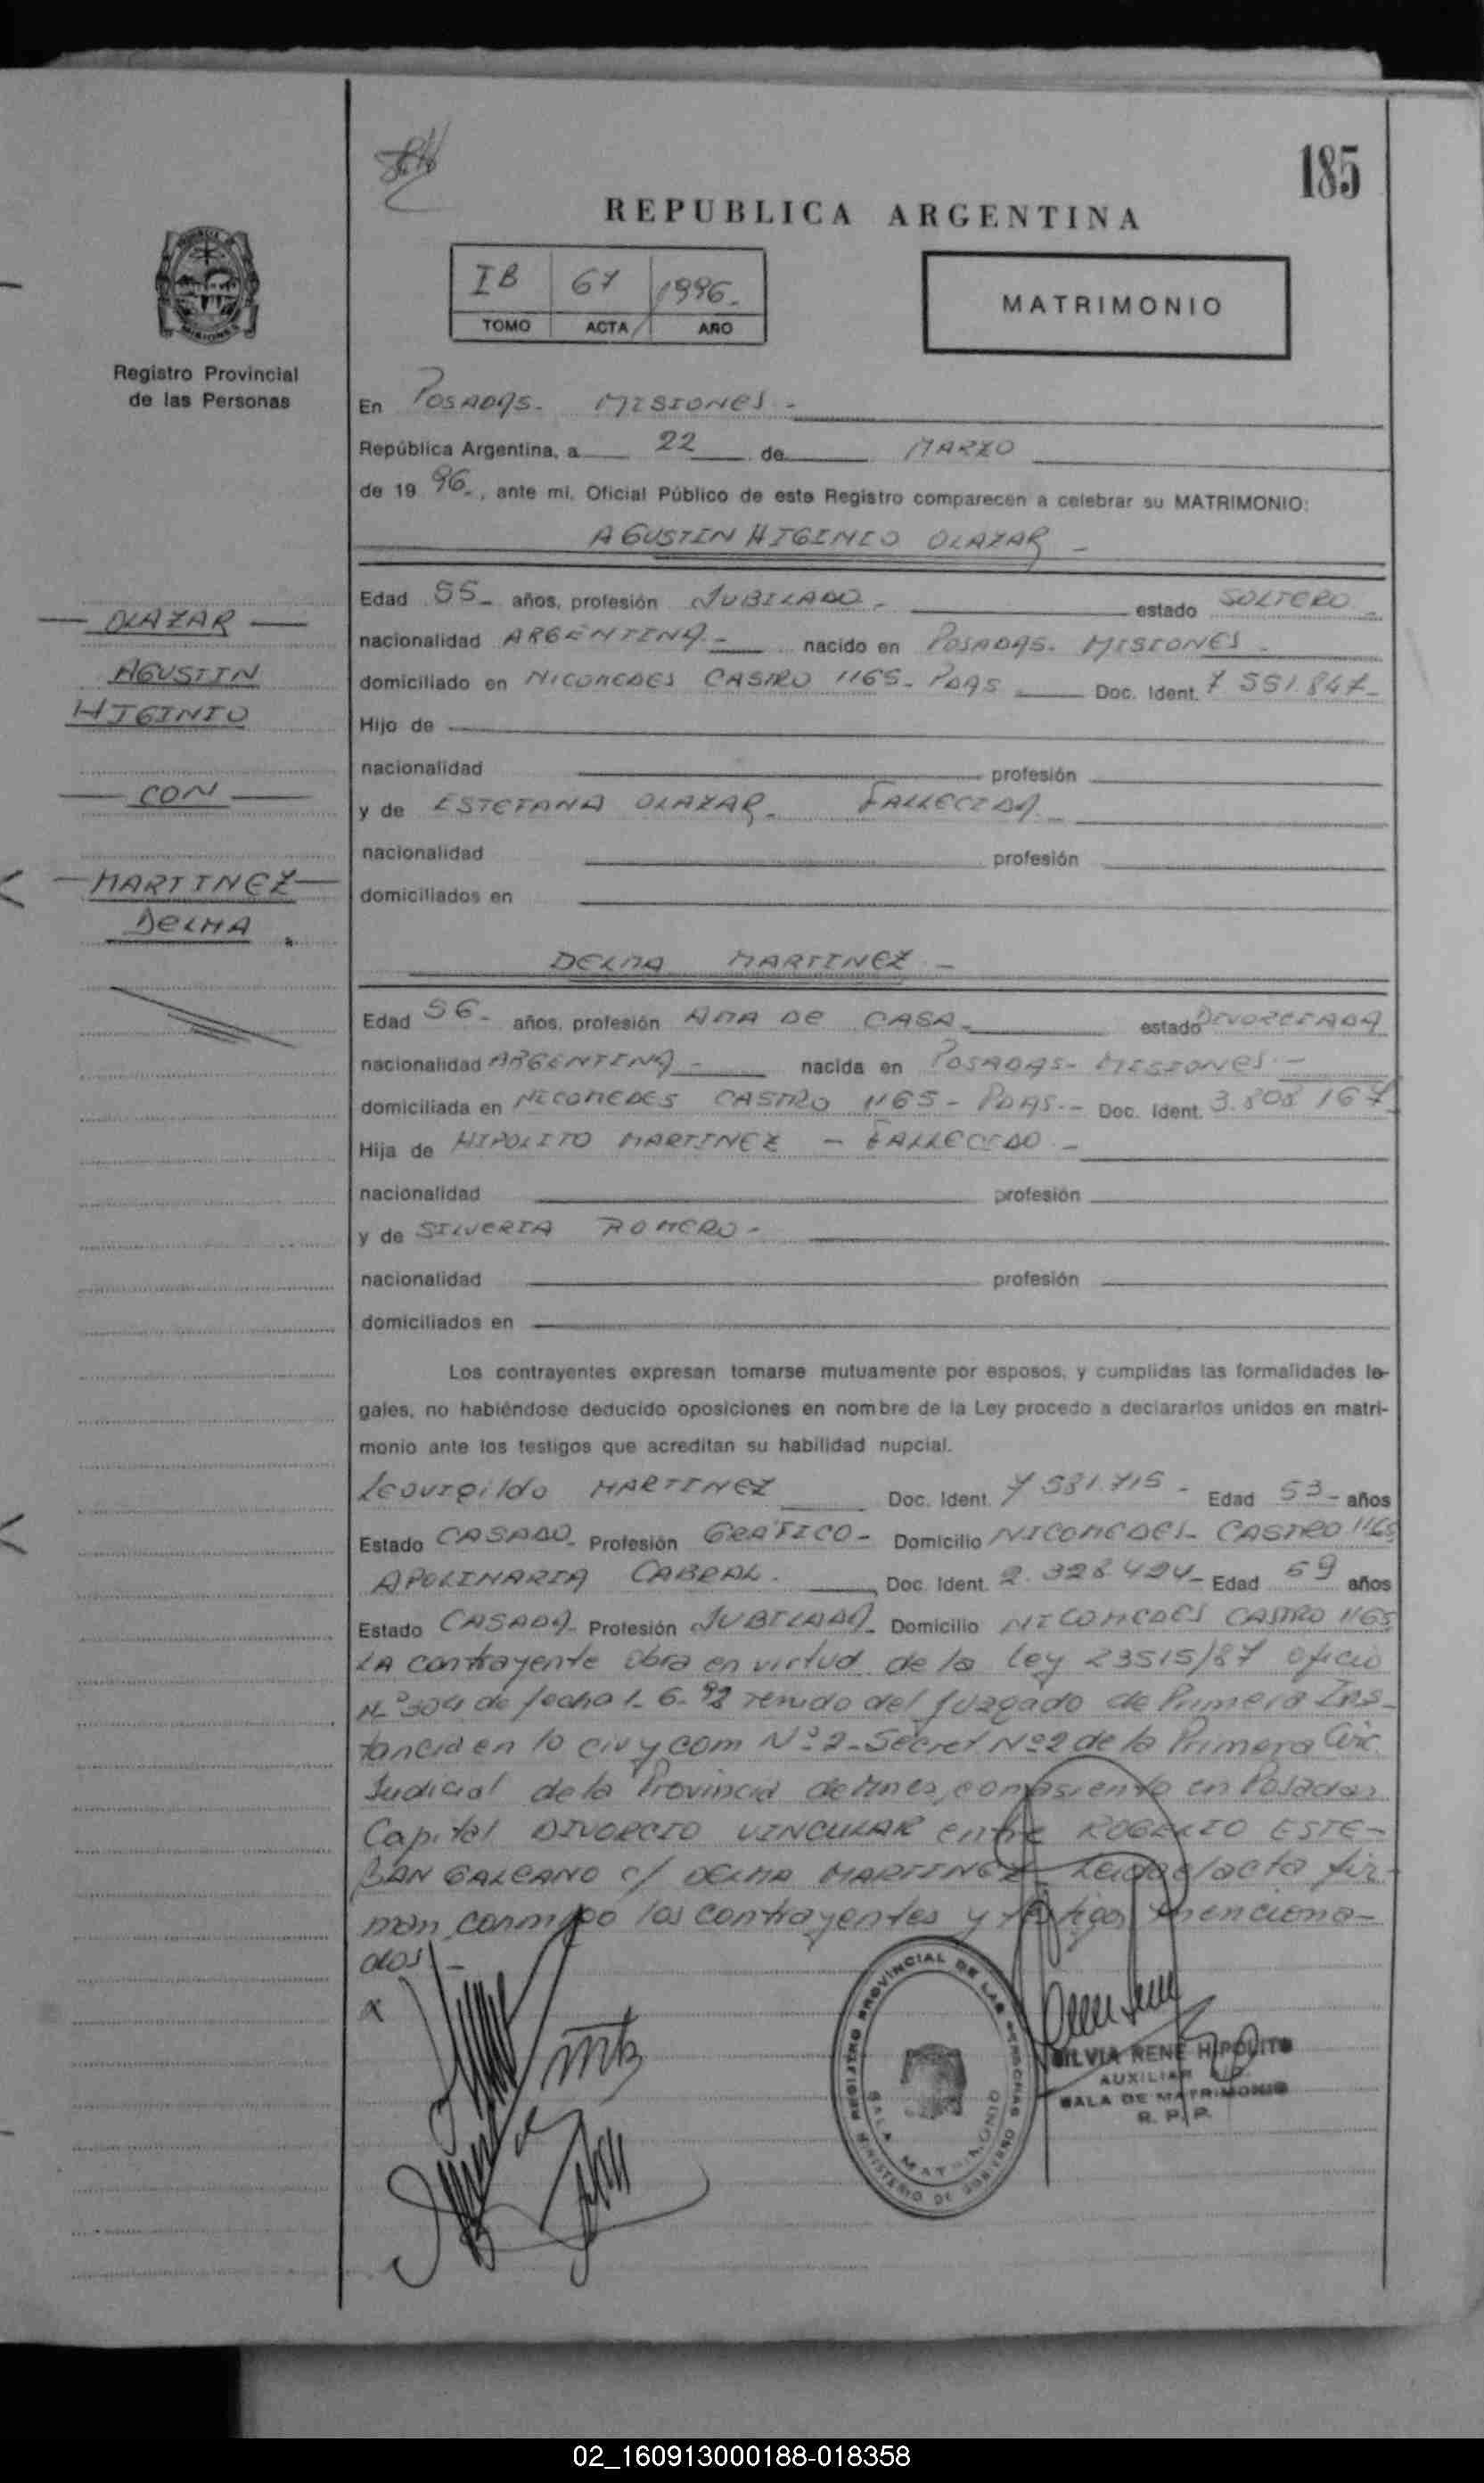 185
REPUBLICA ARGENTINA
IB 67 1996.
TOMO ACTA AÑO
MATRIMONIO
Registro Provincial
de las Personas
En POSADAS. MISIONES -
República Argentina, a 22 de MARZO
de 19 96., ante mí, Oficial Público de este Registro comparecen a celebrar su MATRIMONIO:
AGUSTIN HIGINIO OLAZAR -
Edad 55- años, profesión JUBILADO. estado SOLTERO
nacionalidad ARGENTINA.- nacido en POSADAS. MISIONES.
domiciliado en NICOMEDES CASTRO 1165- PDAS Doc. Ident. 7 551.847-
Hijo de
nacionalidad profesión
y de ESTEFANA OLAZAR. FALLECIDA.
nacionalidad profesión
domiciliados en
OLAZAR
AGUSTIN
HIGINIO
CON
MARTINEZ
DELMA.
DELMA MARTINEZ -
Edad 56- años, profesión AMA DE CASA- estado DIVORCIADA
nacionalidad ARGENTINA - nacida en POSADAS- MISIONES.-
domiciliada en NICOMEDES CASTRO 1165- PDAS.- Doc. Ident. 3.808 167
Hija de HIPOLITO MARTINEZ - FALLECIDO.-
nacionalidad profesión
y de SILVERIA ROMERO-
nacionalidad profesión
domiciliados en
Los contrayentes expresan tomarse mutuamente por esposos, y cumplidas las formalidades le-
gales, no habiéndose deducido oposiciones en nombre de la Ley procedo a declararlos unidos en matri-
monio ante los testigos que acreditan su habilidad nupcial.
MARTINEZ Doc. Ident. 7 531.715- Edad 53- años
Estado CASADO- Profesión GRAFICO- Domicilio NICOMEDES- CASTRO 1165
APOLINARIA CABRAL. Doc. Ident. 2.328 424- Edad 69 años
Estado CASADA- Profesión JUBILADA- Domicilio NICOMEDES CASTRO 1165
LA contrayente obra en virtud de la ley 23515/87 oficio
Nº 304 de fecha 1-6-92 del Juzgado de Primera Ins-
tancia en lo civ y com Nº 2- Secret Nº 2 de la Primera Circ.
Judicial de la Provincia de Mnes, con asiento en Posadas
Capital DIVORCIO VINCULAR entre ROGELIO ESTE-
BAN GALEANO c/ DELMA MARTINEZ Leida el acta fir-
man conmigo los contrayentes y testigos menciona-
dos.-
x
REGISTRO PROVINCIAL DE LAS PERSONAS
SALA MATRIMONIO
MINISTERIO DE GOBIERNO
SILVIA RENE HIPOLITO
AUXILIAR
SALA DE MATRIMONIO
R. P. P.
02_160913000188-018358